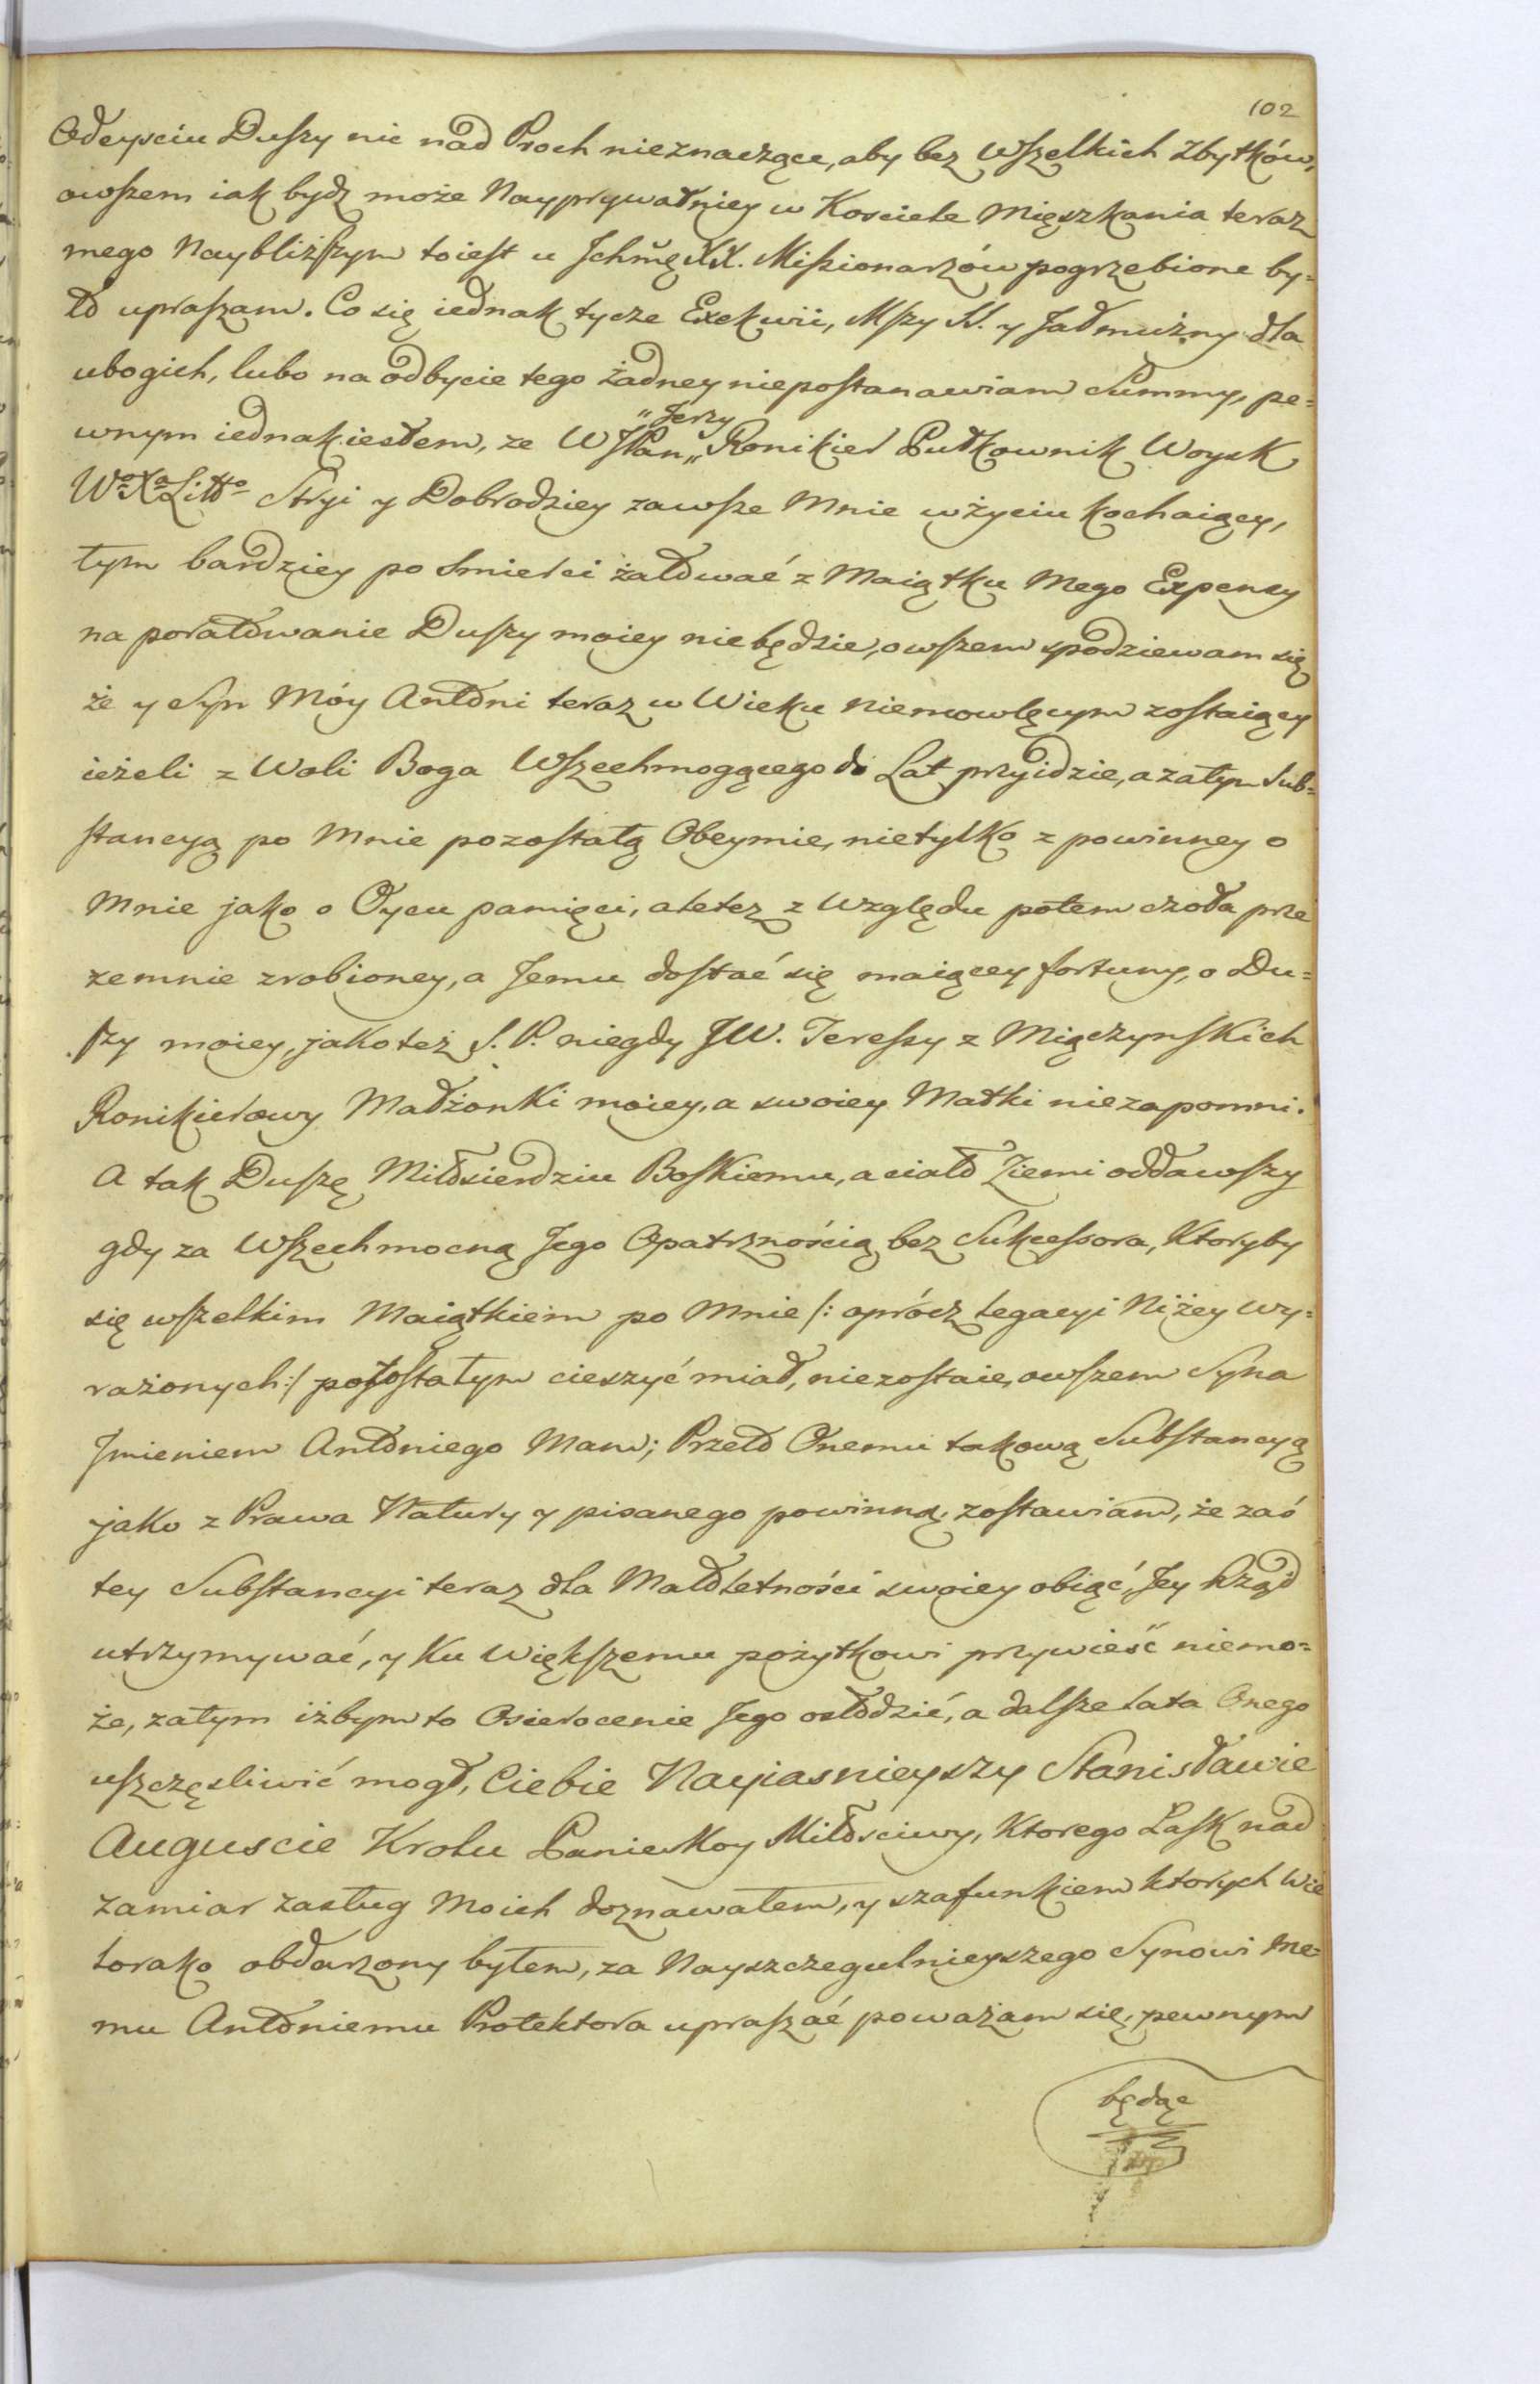 102
Odeyściu Duszy nic nad Proch nieznaczące, aby bez wszelkich Zbytków,
owszem iak bydz może Nayprywatniey w Kosciele Mięszkania teraz
mego Naybliższym toiest u Jchmę XX. Missionarzów pogrzebione by=
ło upraszam. Co się iednak tycze Exekwii, Mszy SS. y Jałmużny dla
ubogich, lubo na odbycie tego żadney niepostanawiam Summy, pe=
wnym iednak iestem, ze WJPan „ Jerzy „ Ronikier Pułkownik Woysk
Wo Xa Litto Stryi y Dobrodziey zawsze Mnie w życiu kochaiący,
tym bardziey po smierci żałować z Maiątku Mego Expensy
na poratowanie Duszy moiey niebędzie, owszem spodziewam się
że y Syn Móy Antoni teraz w Wieku niemowlęcym zostaiący
ieżeli z Woli Boga Wszechmogącego do Lat przyidzie, a zatym Sub=
stancyą po Mnie pozostałą Obeymie, nietylko z powinney o
Mnie jako o Oycu pamięci, ale tez z względu potem czoła prze
zemnie zrobioney, a Jemu dostać się maiącey fortuny, o Du=
szy moiey, jako też S. P. niegdy JW. Teressy z Miączynskich
Ronikierowy Małżonki moiey, a swoiey Matki niezapomni.
A tak Duszę Miłosierdziu Boskiemu, a ciało Ziemi oddawszy
gdy za Wszechmocną Jego Opatrznością bez Sukcessora, Ktoryby
się wszelkim Maiątkiem po Mnie /: oprócz legacyi Niżey wy=
rażonych :/ pozostałym cieszyć miał, niezostaie, owszem Syna
Jmieniem Antoniego Mam; Przeto Onemu takową Substancyą
jako z Prawa Natury y pisanego powinną, zostawiam, że zaś
tey Substancyi teraz dla Małoletności swoiey obiąć, Jey Rząd
utrzymywać, y Ku Większemu pożytkowi przywieść niemo=
że, zatym iżbym to Osierocenie Jego osłodzić, a dalsze lata Onego
uszczęsliwić mogł, Ciebie Nayiasnieyszy Stanisławie
Auguscie Krolu Panie Moy Miłosciwy, Ktorego Łask nad
zamiar zasług Moich doznawałem, y szafunkiem ktorych wie
lorako obdarzony byłem, za Nayszczegulnieyszego Synowi Me=
mu Antoniemu Protektora upraszać poważam się, pewnym
będąc